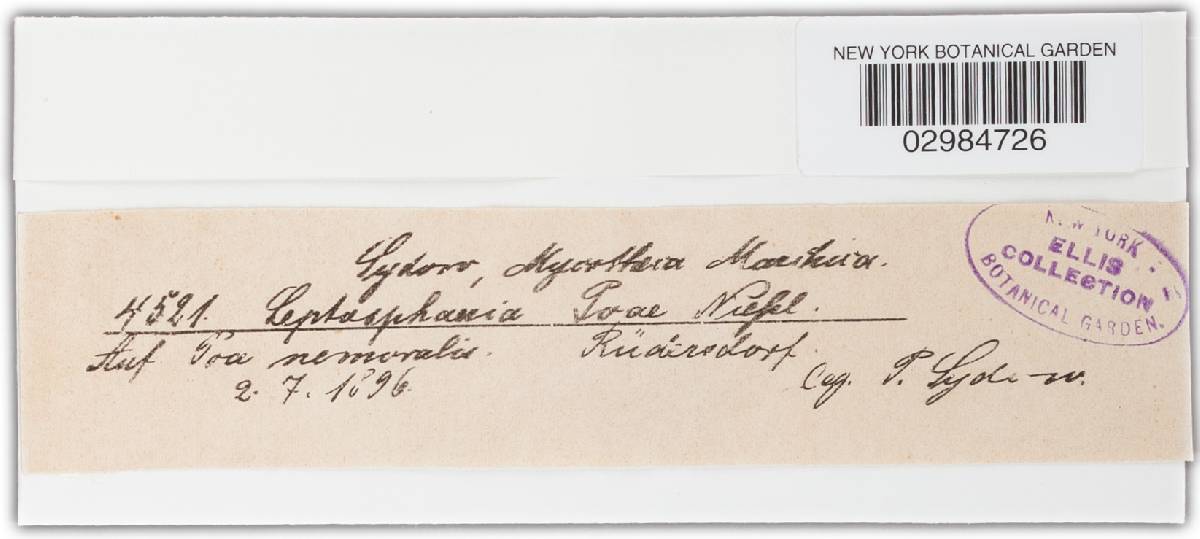 NEW YORK BOTANICAL GARDEN
02984726
NEW YORK
ELLIS
COLLECTION
BOTANICAL GARDEN.
Sydow, Mycotheca Marchica.
4521. Leptosphaeria Poae Niessl.
Auf Poa nemoralis. Rüdersdorf.
2. 7. 1896
leg. P. Sydow.